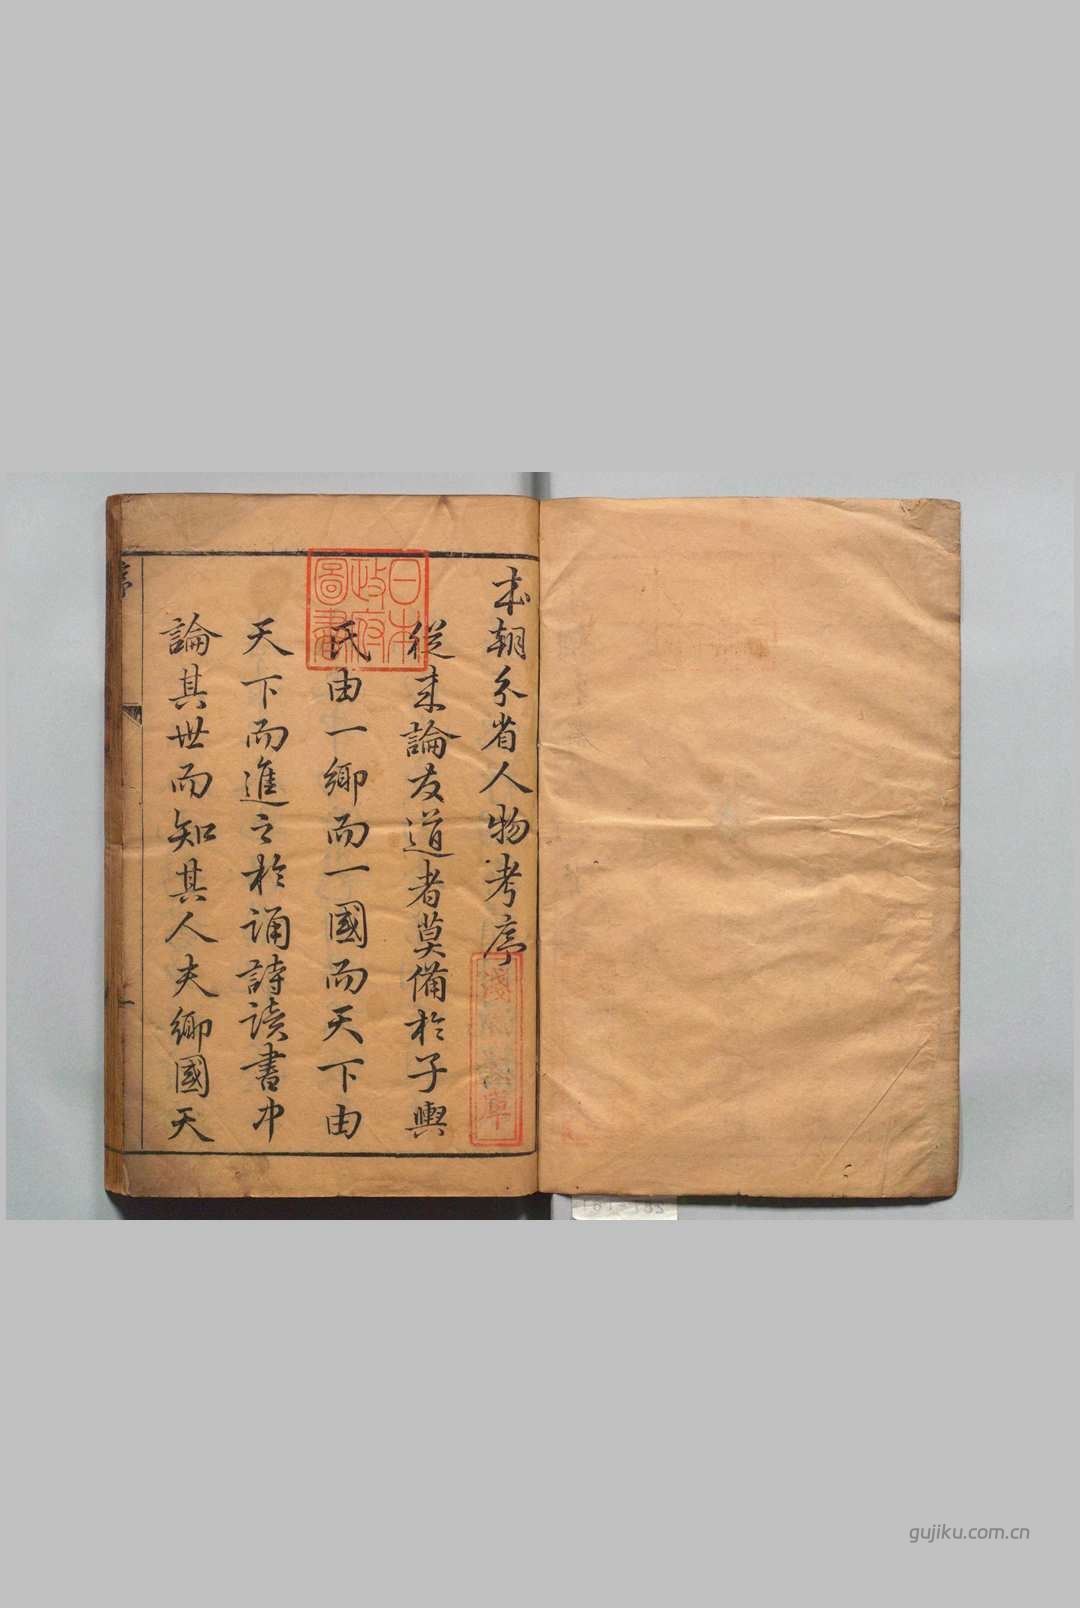 本朝分省人物考序
從来論友道者莫備於子輿
氏由一鄉而一國而天下由
天下而進之於誦詩讀書中
論其世而知其人夫鄉國天
日本
政府
圖書
淺草
序
gujiku.com.cn